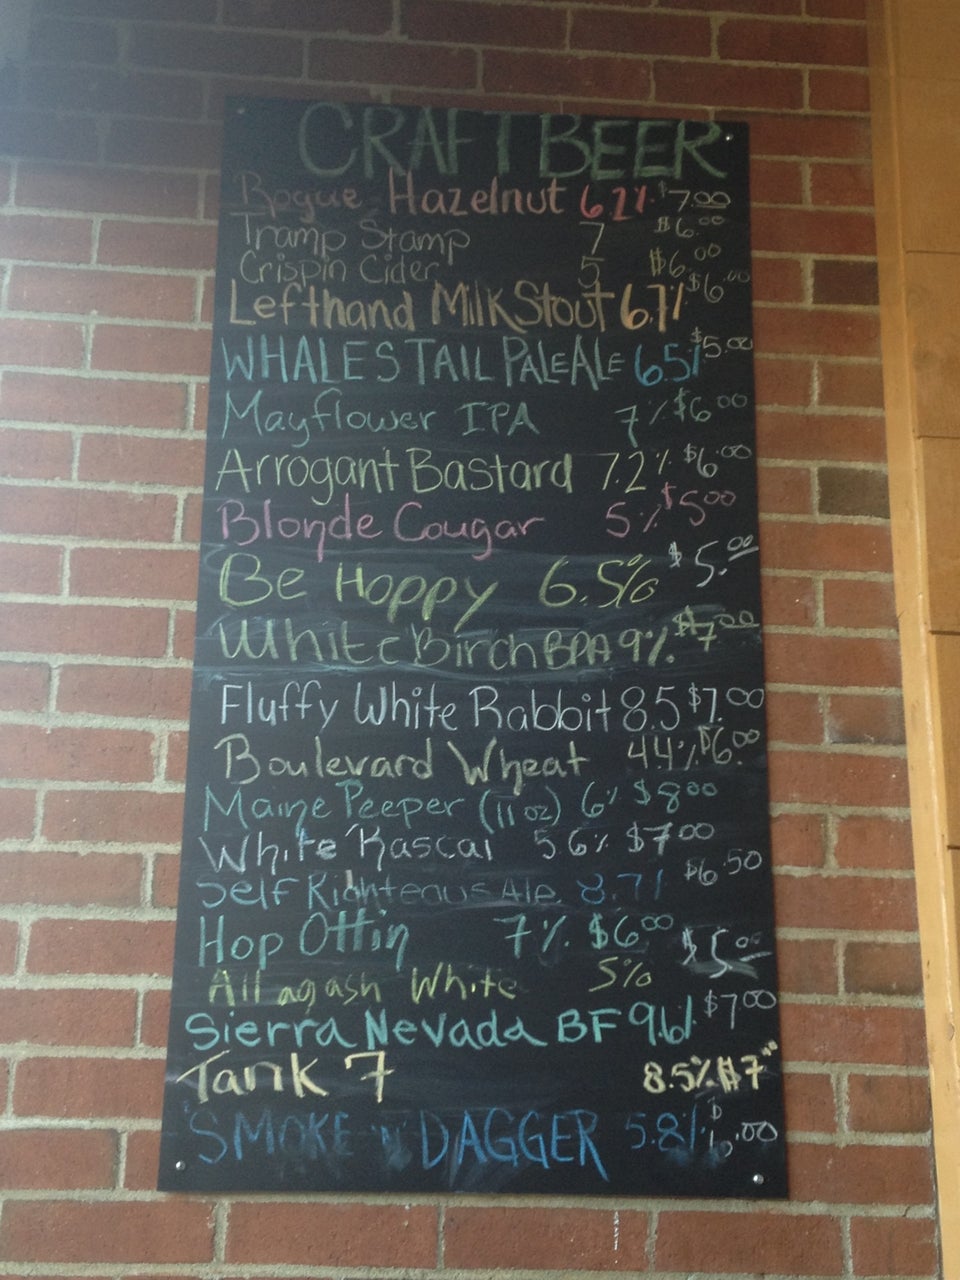 CRAFT BEER
Rogue Hazelnut 6.2% $7.00
Tramp Stamp 7 $6.00
Crispin Cider 5 $6.00
Lefthand Milk Stout 6.7% $6.00
WHALES TAIL PALE ALE 6.5% $5.00
Mayflower IPA 7% $6.00
Arrogant Bastard 7.2% $6.00
Blonde Cougar 5% $5.00
Be Hoppy 6.5% $5.00
White Birch BPA 9% $7.00
Fluffy White Rabbit 8.5 $7.00
Boulevard Wheat 44% $6.00
Maine Peeper (11 oz) 6% $8.00
White Rascal 5 6% $7.00
Self Righteous Ale 8.7% $6.50
Hop Ottin 7% $6.00
Allagash White 5% $5.00
Sierra Nevada BF 9.6% $7.00
Tank 7 8.5% $7.00
SMOKE 'N' DAGGER 5.8%